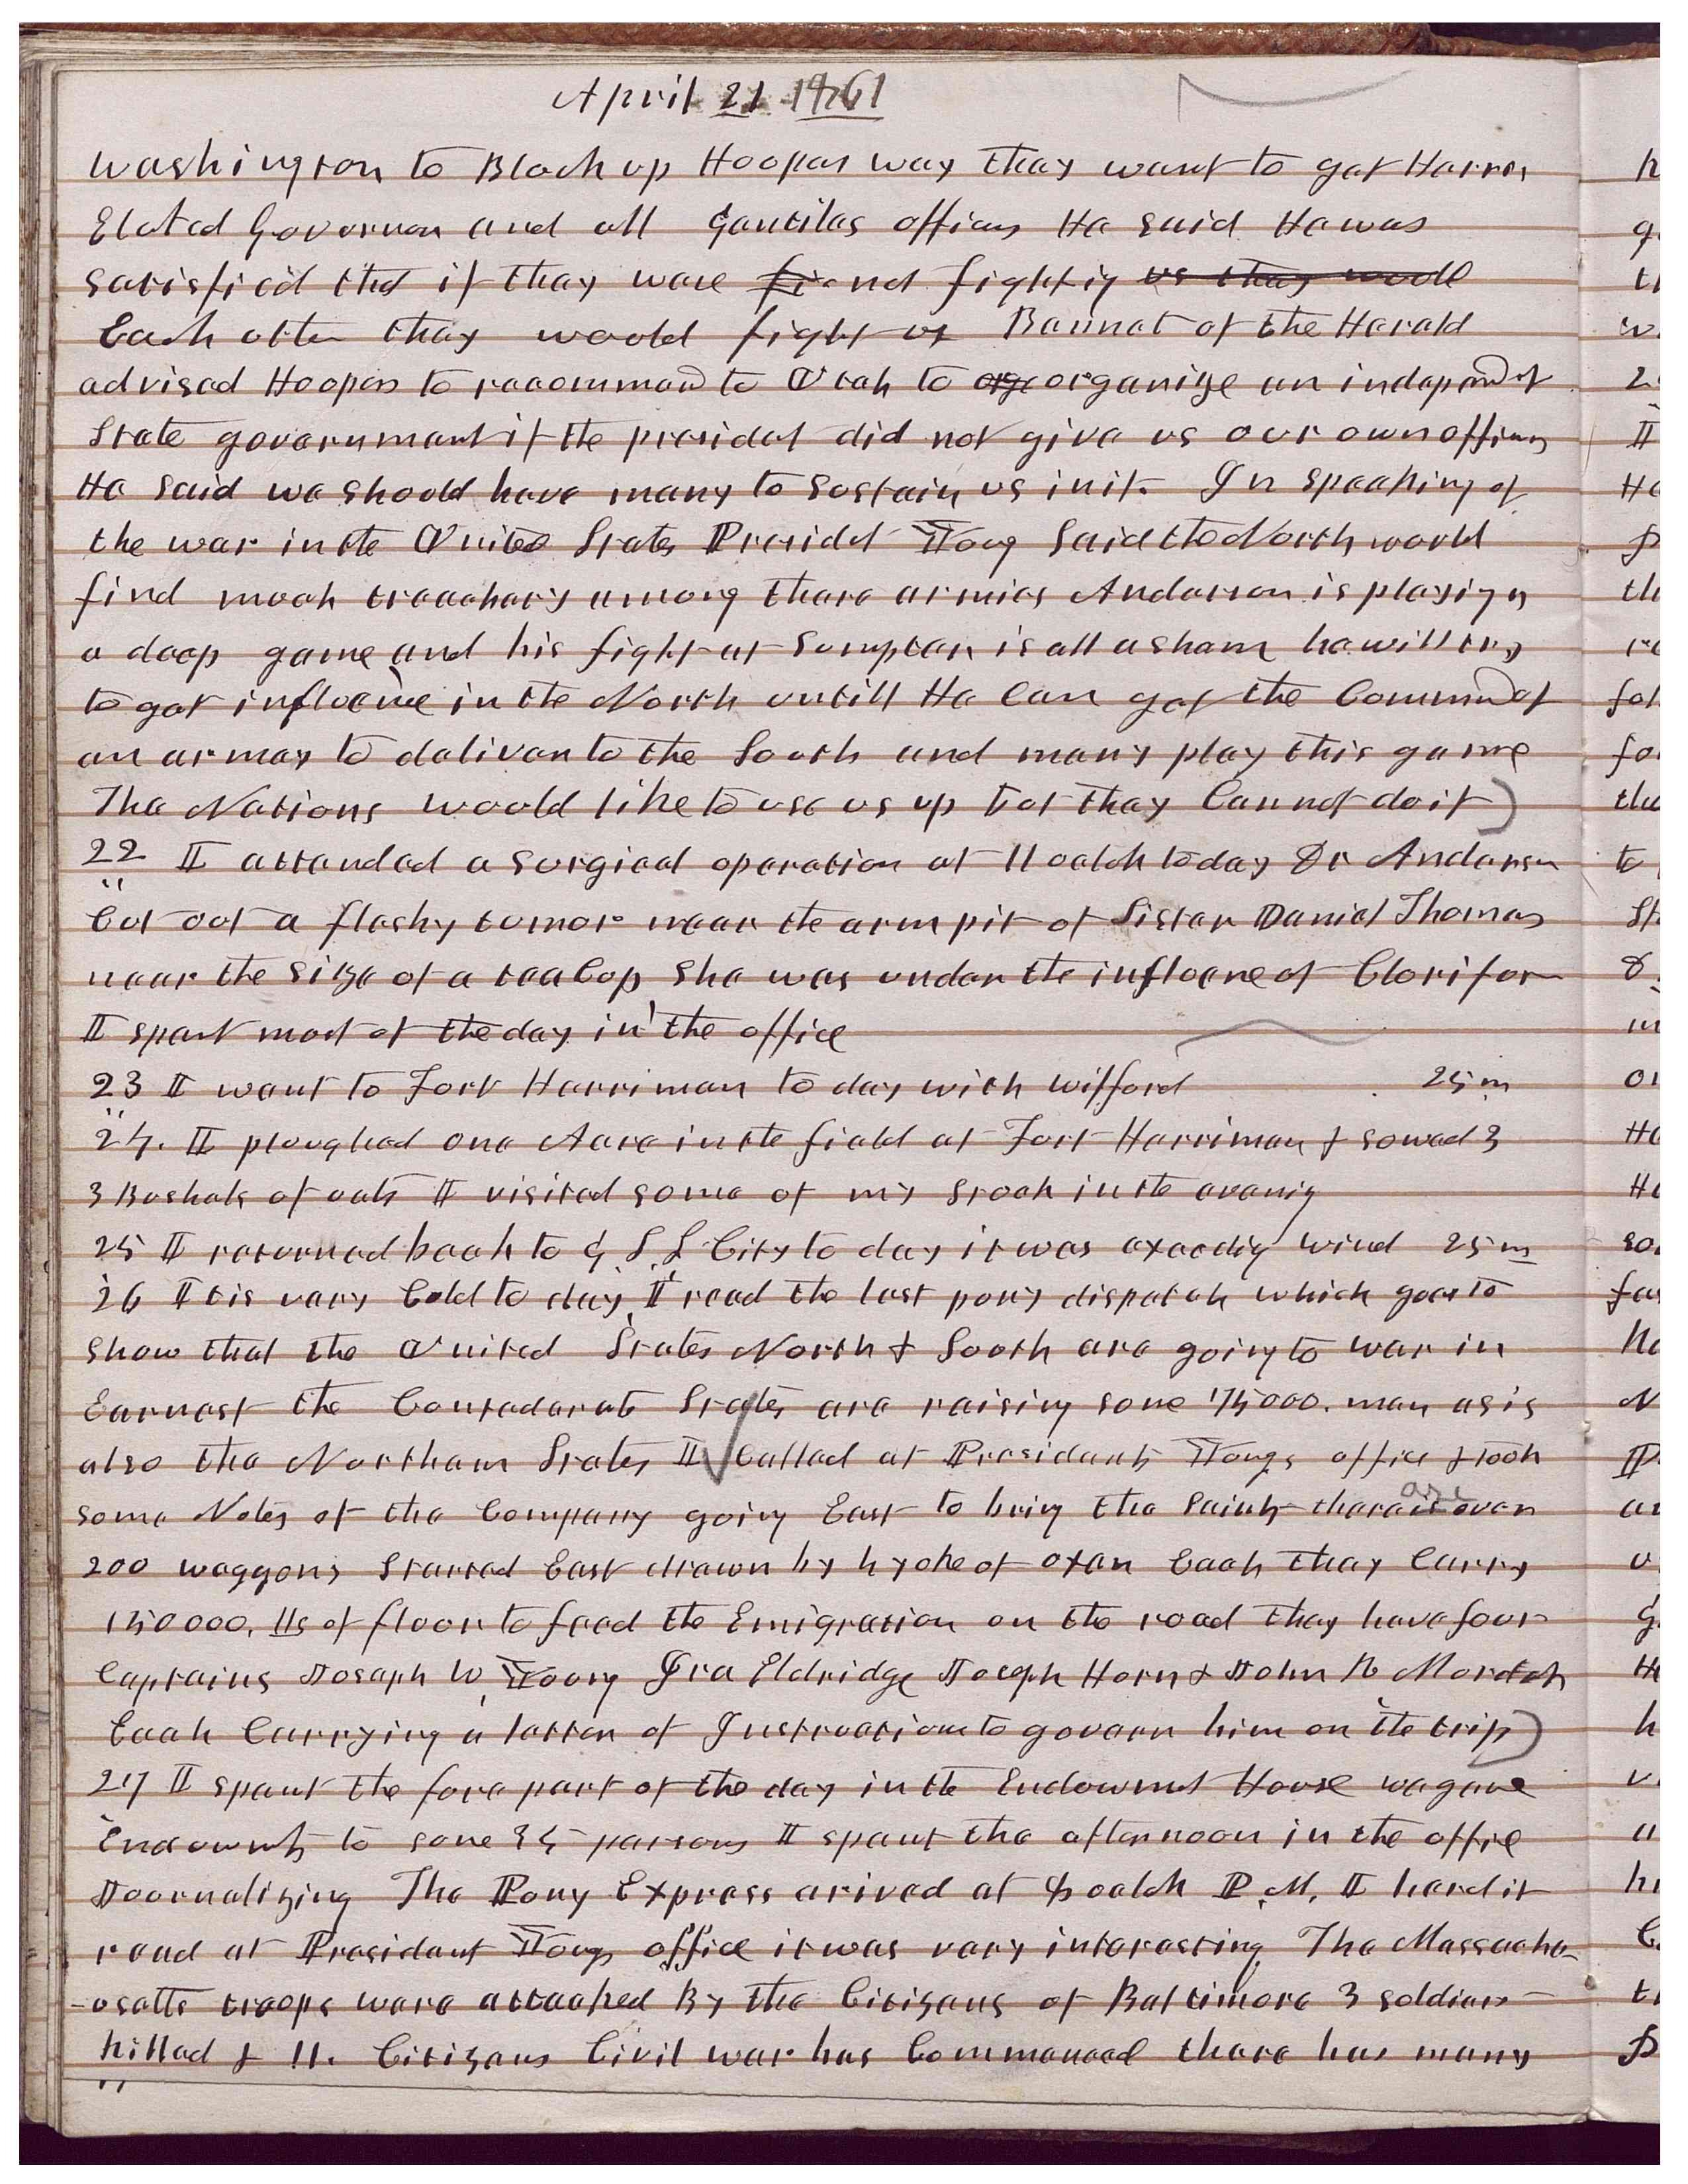 April 21 1861
washington to Block up Hoopers way they want to get Harris
Elected Governor and all Gentiles officers He said He was
satisfied that if they ware fi not fighting us they would
Each other they would fight us Bennet of the Herald
advised Hooper to recommend to Utah to orge organize an independent
State government if the presidet did not give us our own officers
He said we should have many to sustain us in it. In speaking of
the war in the United States Presidet Young said the North would
find much treachery among there armies Anderson is playing
a deep game and his fight at Sumpter is all a sham he will try
to get influence in the North untill He Can get the Command of
an armey to deliver to the South and many play this game
The Nations would like to use us up but they Cannot do it)
22 I attended a surgical operation at 11 oclck to day Dr Anderson
Cut out a fleshy tumor near the arm pit of Sister Daniel Thomas
near the size of a tea Cup She was under the influence of Cloriform
I spent most of the day in the office
23 I went to Fort Harriman to day with wilford 25 m
24. I ploughed one Acre in the field at Fort Harriman & sowed 3
3 Bushels of oats I visited some of my stock in the evenig
25 I returned back to G S L City to day it was exceedig wind 25 m
26 It is very Cold to day I read the last pony dispatch which goes to
show that the United States North & South are going to war in
Earnest the Confederate States are raising some 75000. men as is
also the Northern States I Called at Presidents Youngs office & took
some Notes of the Company going East to bring the Saints there is are over
200 waggons Started East drawn by 4 yoke of oxen Each they Carry
150000. lbs of flour to feed the Emigration on the road they have four
Captains Joseph W. Young Ira Eldridge Joseph Horn & John R Murdoch
Each Carrying a letter of Instructions to govern him on the trip)
27 I spent the fore part of the day in the Endowmet House we gave
Endowmets to some 35 persons I spent the afternoon in the office
Journalizing The Pony Express arived at 4 oclck P.M. I heard it
read at President Youngs office it was very interesting The Massachu-
-usetts troops ware attacked By the Citizens of Baltimore 3 soldiers
killed & 11. Citizens Civil war has Commenced there has many